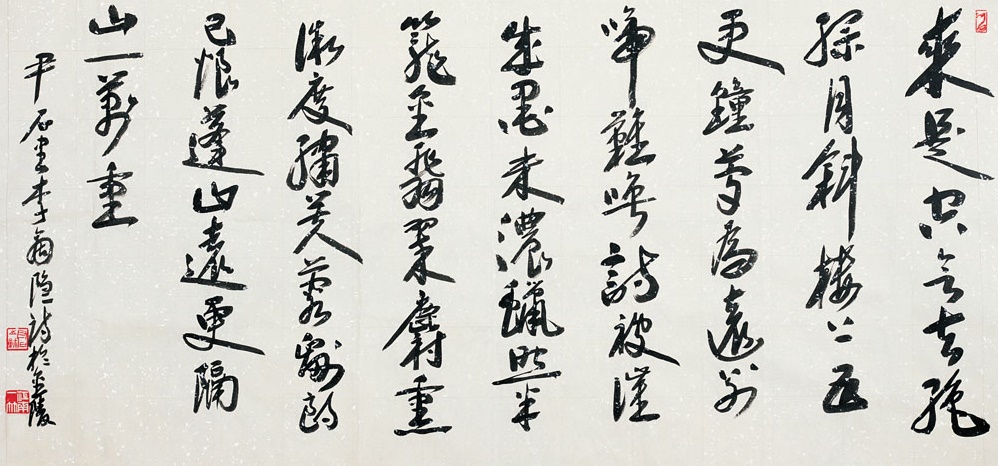 來是空言去絕
踪月斜樓上五
更鐘夢為遠別
啼難喚詩被催
成墨未濃蠟照半
籠金翡翠麝熏
微度繡芙蓉劉郎
已恨蓬山遠更隔
山一萬重
尹石書李商隐詩於金陵